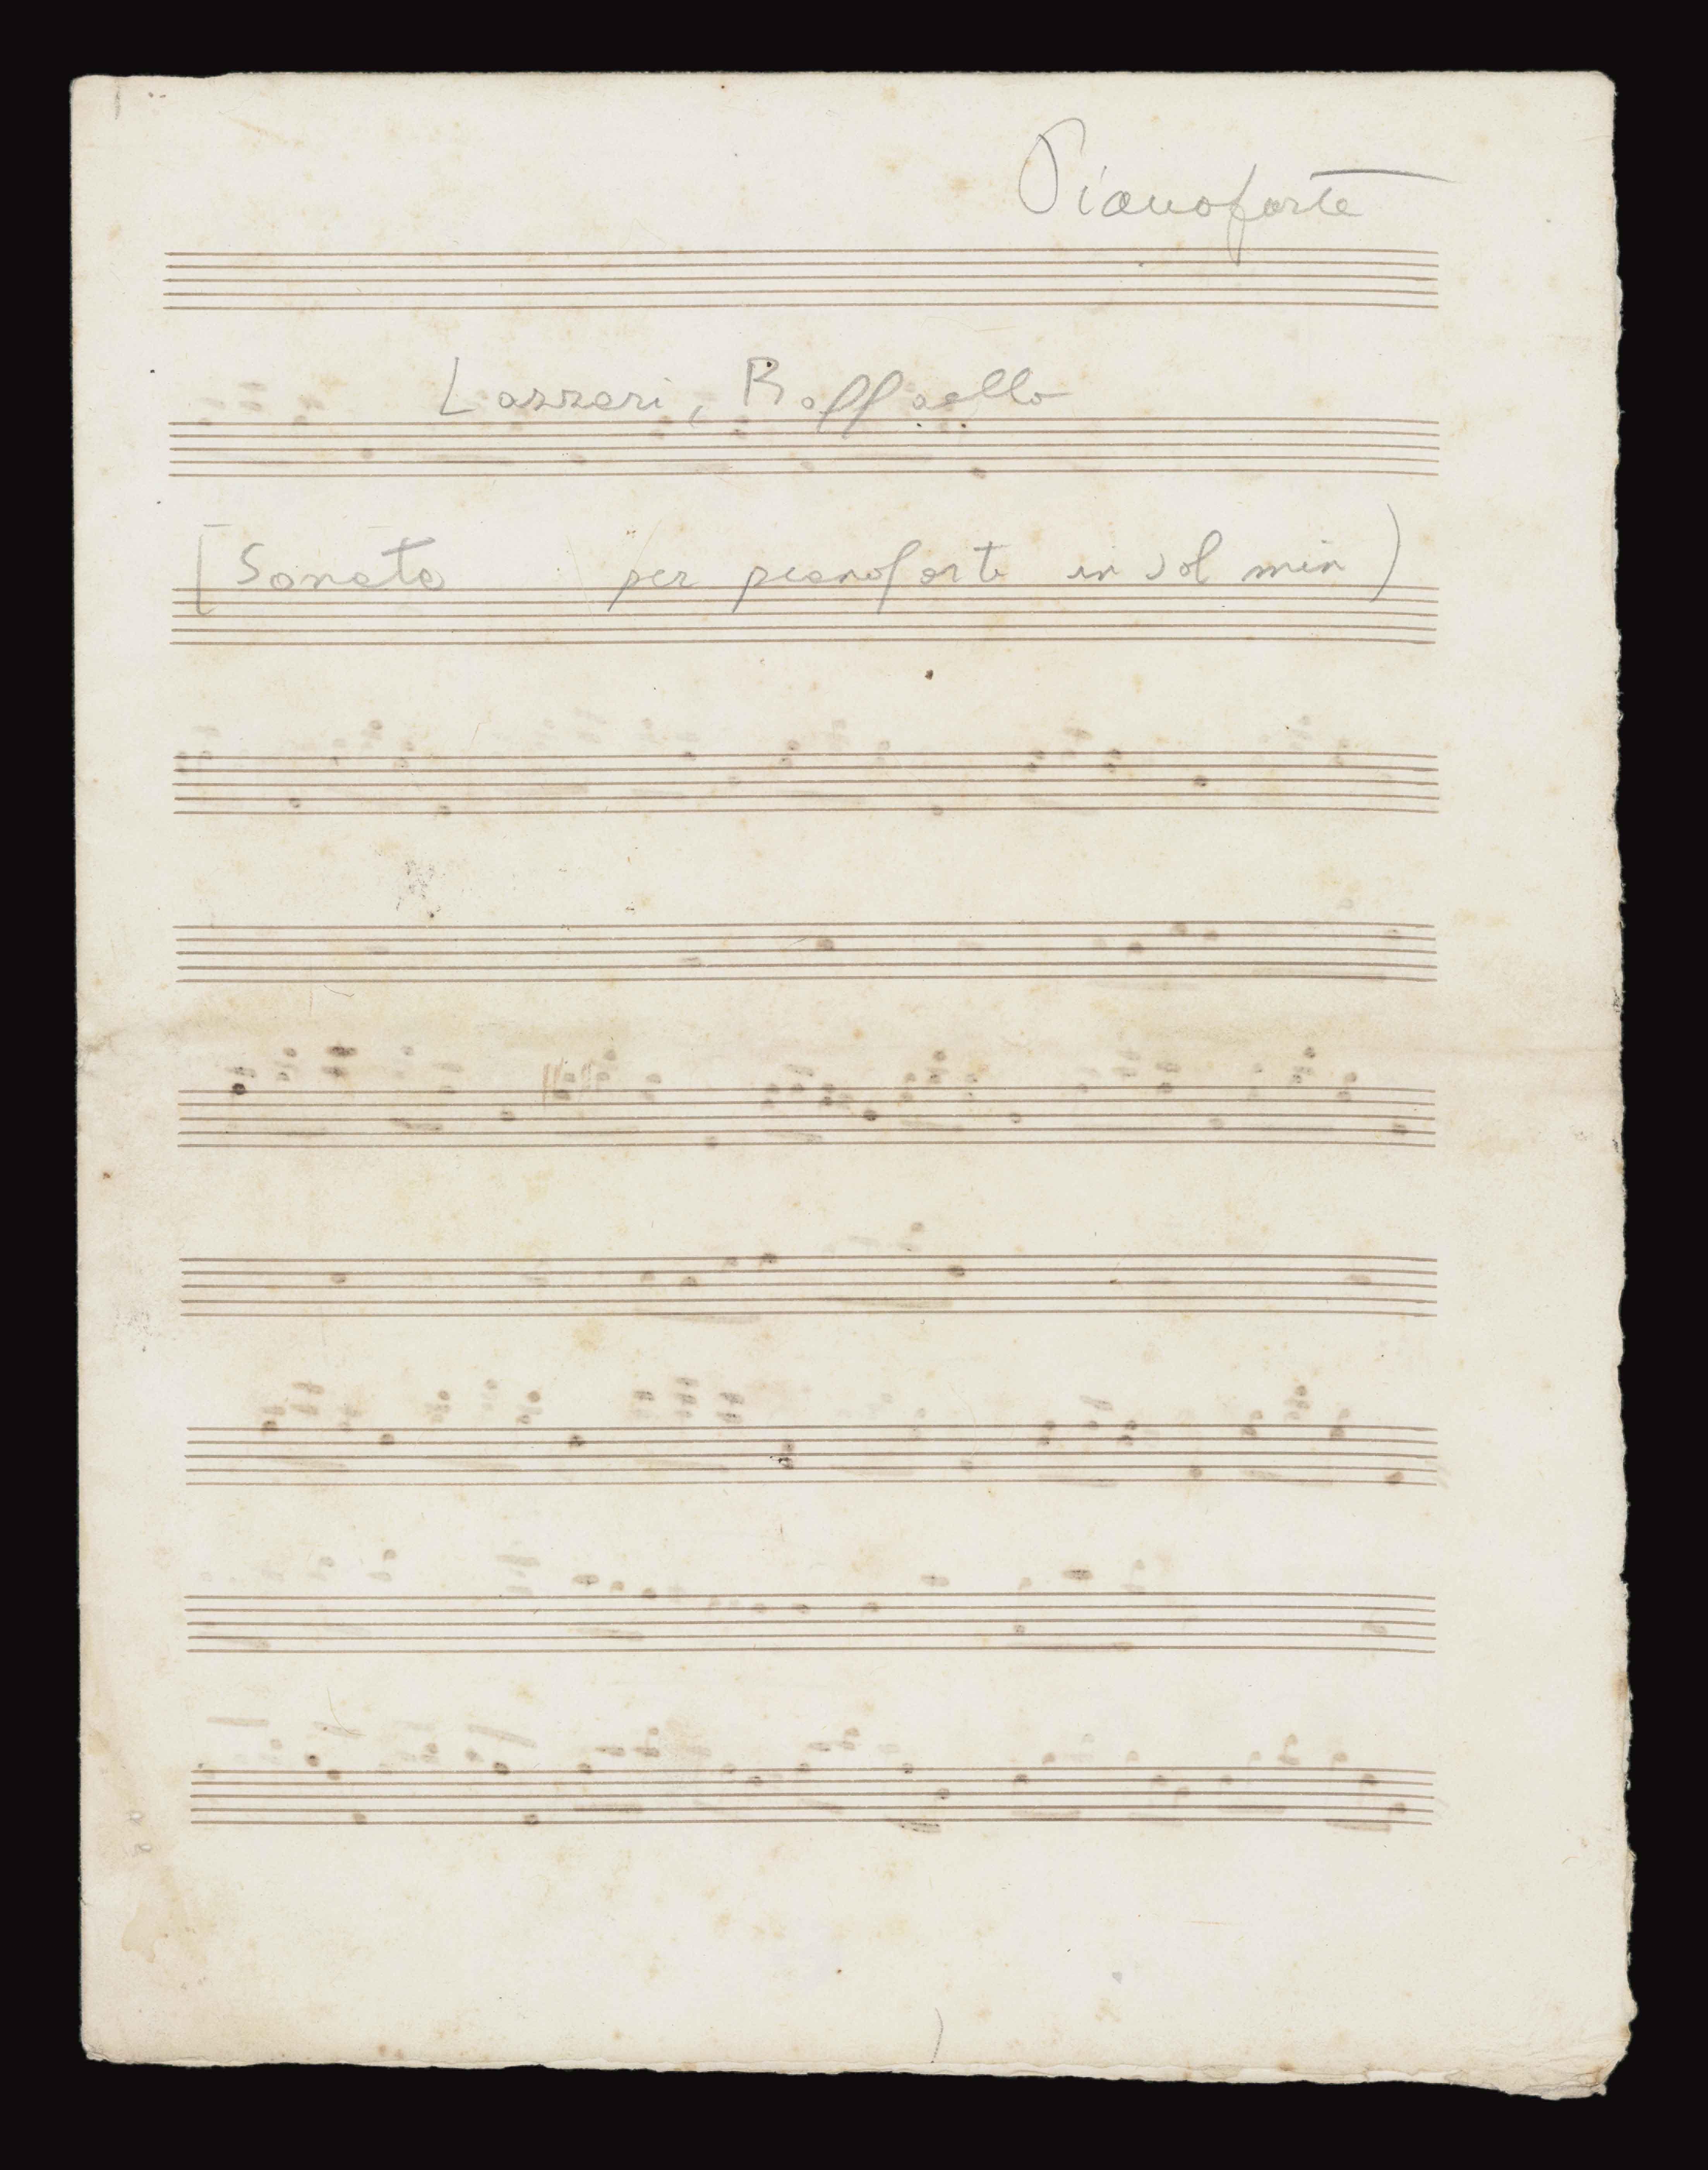 Pianoforte
Lazzeri, Raffaello
[Sonata per pianoforte in sol min)